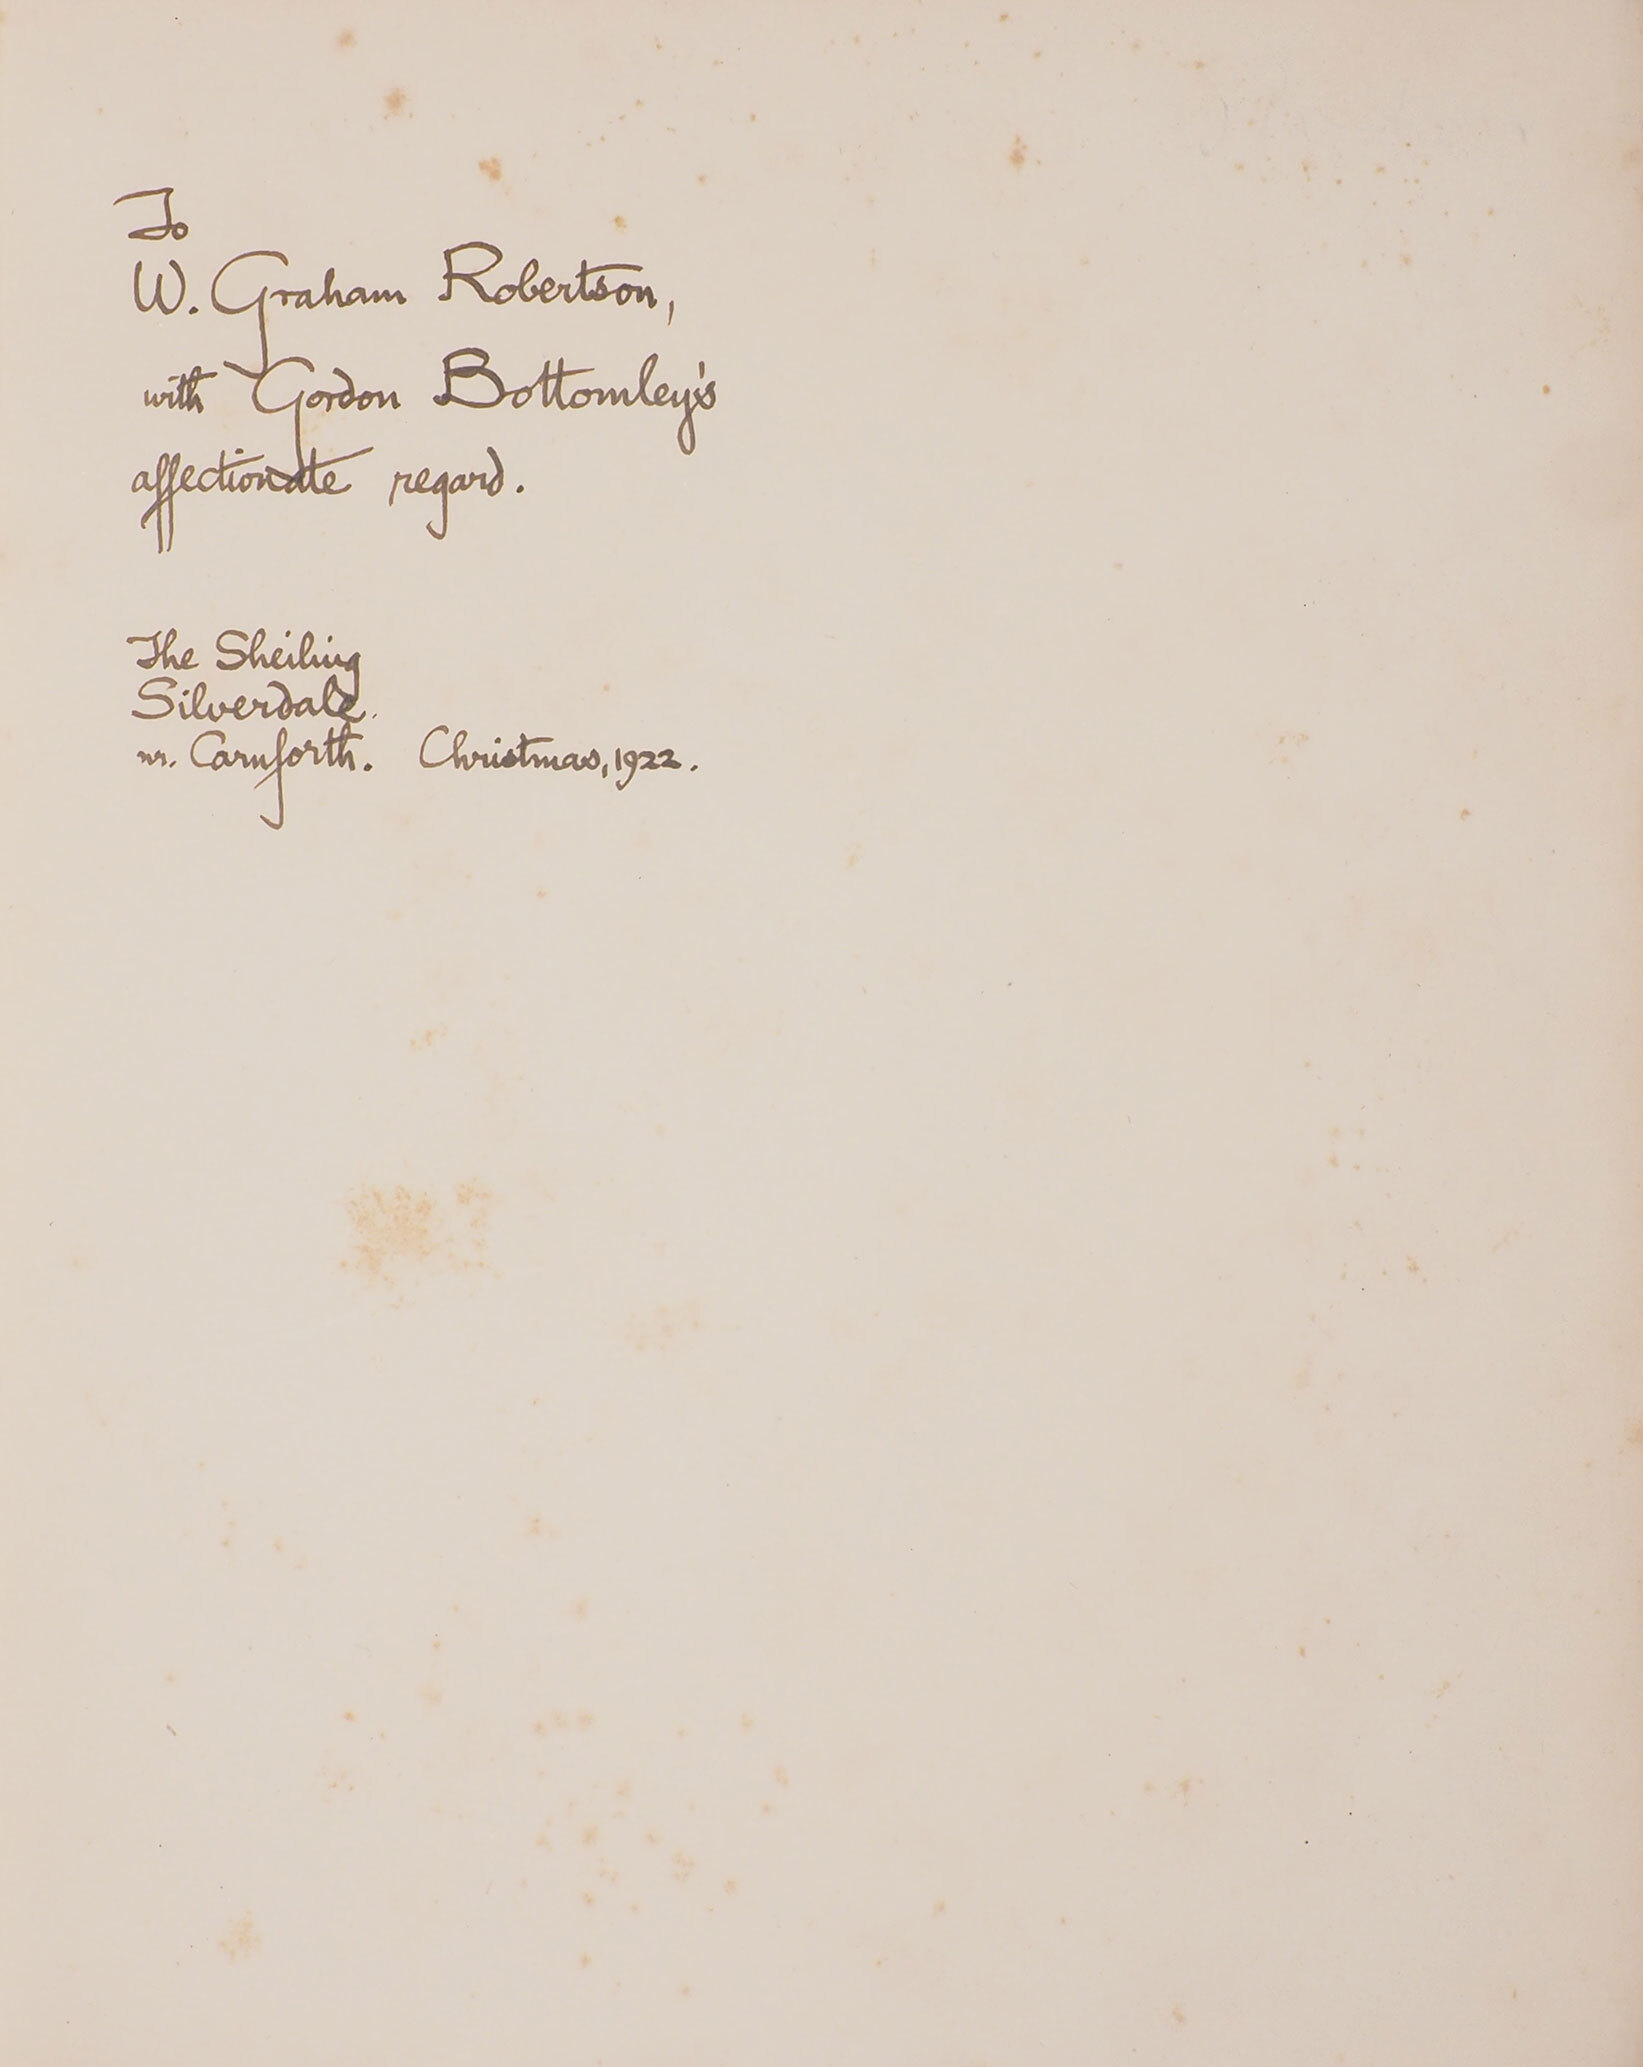 To
W. Graham Robertson,
with Gordon Bottomley's
affectionate regard.
The Sheiling
Silverdale.
nr. Carnforth. Christmas, 1922.